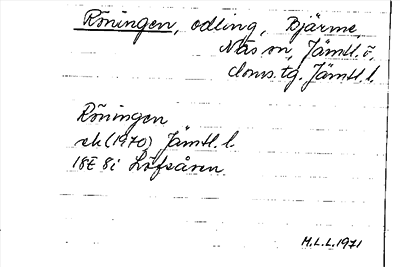 Röningen, odling, Bjärme,
Näs sn, Jämtl. ö,
doms. tg. Jämtl. l.
Röningen
ek (1970) Jämtl. l.
18E 8i Löfsåsen
H.L.L. 1971